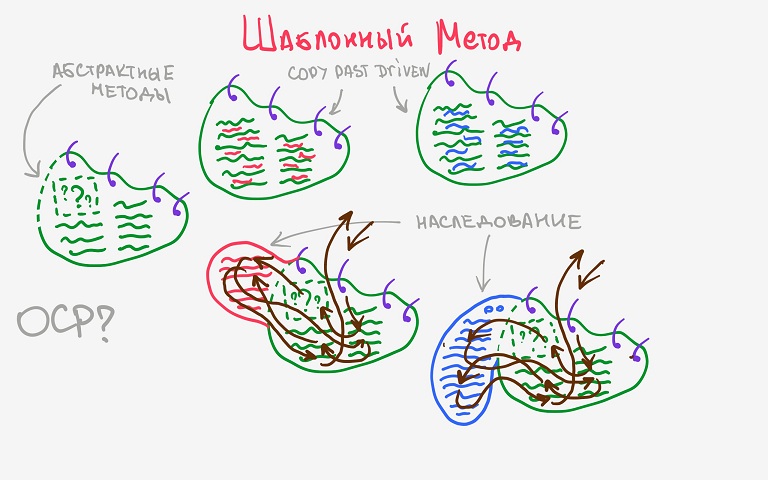 Шаблонный Метод
АБСТРАКТНЫЕ
МЕТОДЫ
COPY PAST DRIVEN
???
НАСЛЕДОВАНИЕ
???
OCP?
??